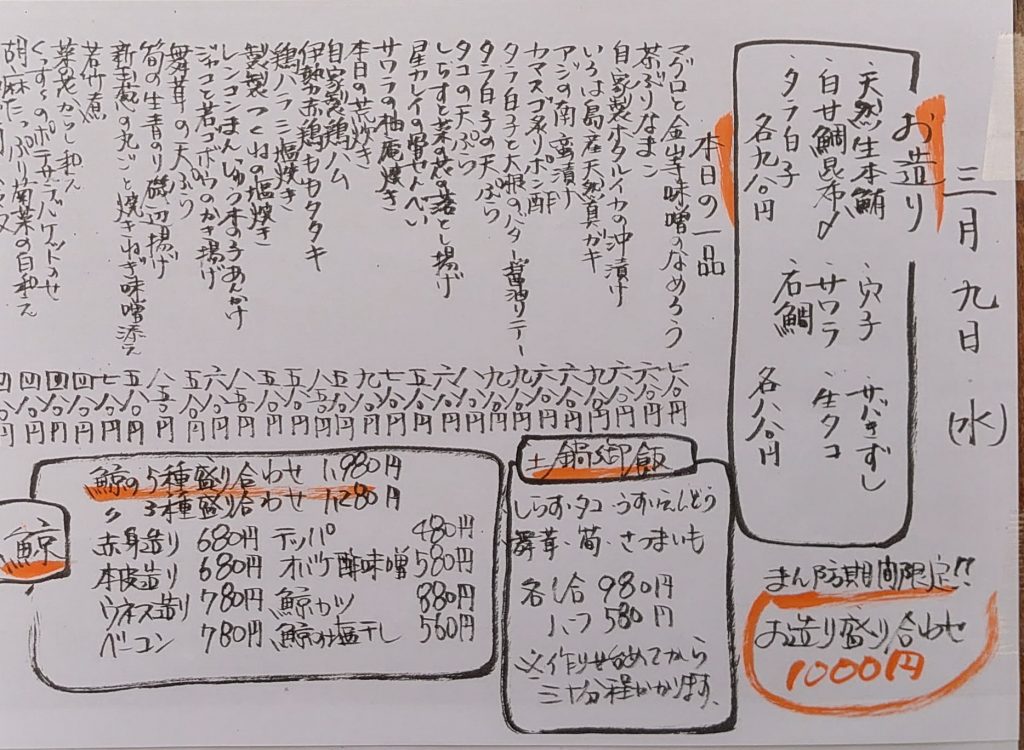 三月九日(水)
お造り
天然生本鮪
白甘鯛昆布〆
タラ白子
各九八〇円
穴子
サワラ
石鯛
サバきずし
生タコ
各八八〇円
まん防期間限定!!
お造り盛り合わせ
1000円
本日の一品
マグロと金山寺味噌のなめろう 七八〇円
茶ぶりなまこ 六八〇円
自家製ホタルイカの沖漬け 六八〇円
いろは島産天然真ガキ 九八〇円
アジの南蛮漬け 六八〇円
カマスゴ炙りポン酢 六八〇円
タラ白子と大根のバター醤油ソテー 九八〇円
タラ白子の天ぷら 九八〇円
タコの天ぷら 八八〇円
しらすと菜の花の落とし揚げ 六八〇円
星カレイの骨せんべい 五八〇円
サワラの柚庵焼き 七八〇円
本日の荒炊き 九八〇円
自家製鶏ハム 五八〇円
伊勢赤鶏ももタタキ 八八〇円
鶏ハラミ塩焼き 五八〇円
製つくねの塩焼き 五八〇円
レンコンまんじゅうきの子あんかけ 八五〇円
ジャコと若ゴボウのかき揚げ 六八〇円
舞茸の天ぷら 五八〇円
筍の生青のり磯辺揚げ 八五〇円
新玉葱の丸ごと焼きねぎ味噌添え 五八〇円
若竹煮 七八〇円
菜の花からし和え 四八〇円
ポテサラバケットのせ 四八〇円
胡麻たっぷり菊菜の白和え 四八〇円
土鍋御飯
しらす・タコ・うすいえんどう
舞茸・筍・さつまいも
各1合 980円
ハーフ 580円
※作り始めてから
三十分程かかります。
鯨
鯨の5種盛り合わせ 1,980円
〃 3種盛り合わせ 1,280円
赤身造り 680円
本皮造り 680円
ウネス造り 780円
ベーコン 780円
テッパ 480円
オバケ酢味噌 580円
鯨カツ 880円
鯨の塩干し 560円